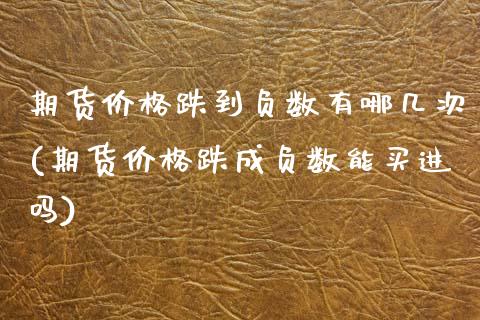 期货价格跌到负数有哪几次
(期货价格跌成负数能买进
吗)